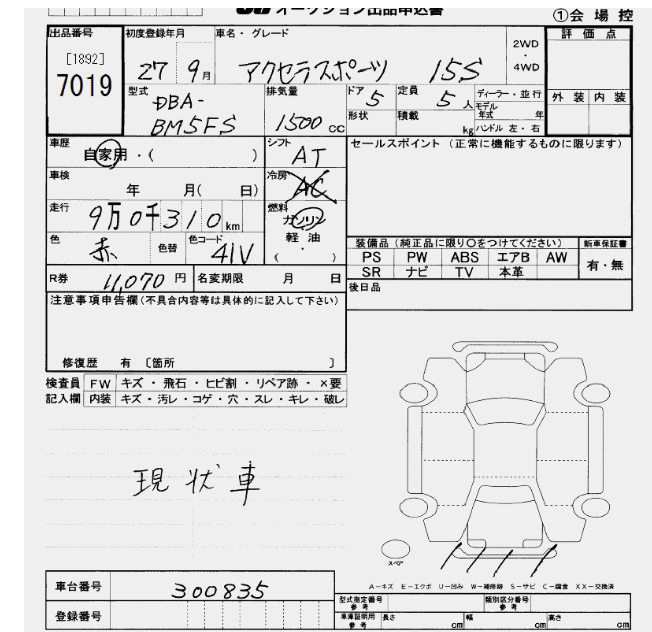 オークション出品申込書
①会場控
出品番号 初度登録年月 車名・グレード 2WD・4WD 評価点
[1892]
7019 27 9月 アクセラスポーツ 15S
型式 排気量 ドア 定員 ディーラー・並行 外装 内装
DBA-BM5FS 1500cc 5 5人 モデル年式 年
形状 積載 kg ハンドル 左・右
車歴 シフト セールスポイント (正常に機能するものに限ります)
自家用・( ) AT
車検 年 月( 日) 冷房 AC
走行 燃料
9万0千310km ガソリン
軽油
( ・ )
色 赤 色替 色コード 41V
装備品 (純正品に限り○をつけてください) 新車保証書
PS PW ABS エアB AW 有・無
SR ナビ TV 本革
R券 11,070円 名変期限 月 日 後日品
注意事項申告欄(不具合内容等は具体的に記入して下さい)
修復歴 有 〔箇所 〕
検査員 FW キズ・飛石・ヒビ割・リペア跡・×要
記入欄 内装 キズ・汚レ・コゲ・穴・スレ・キレ・破レ
現状車
スペア
A―キズ E―エクボ U―凹み W―補修跡 S―サビ C―腐食 XX―交換済
車台番号 300835
型式指定番号 参考 類別区分番号 参考
登録番号
車庫証明用 参考 長さ cm 幅 cm 高さ cm